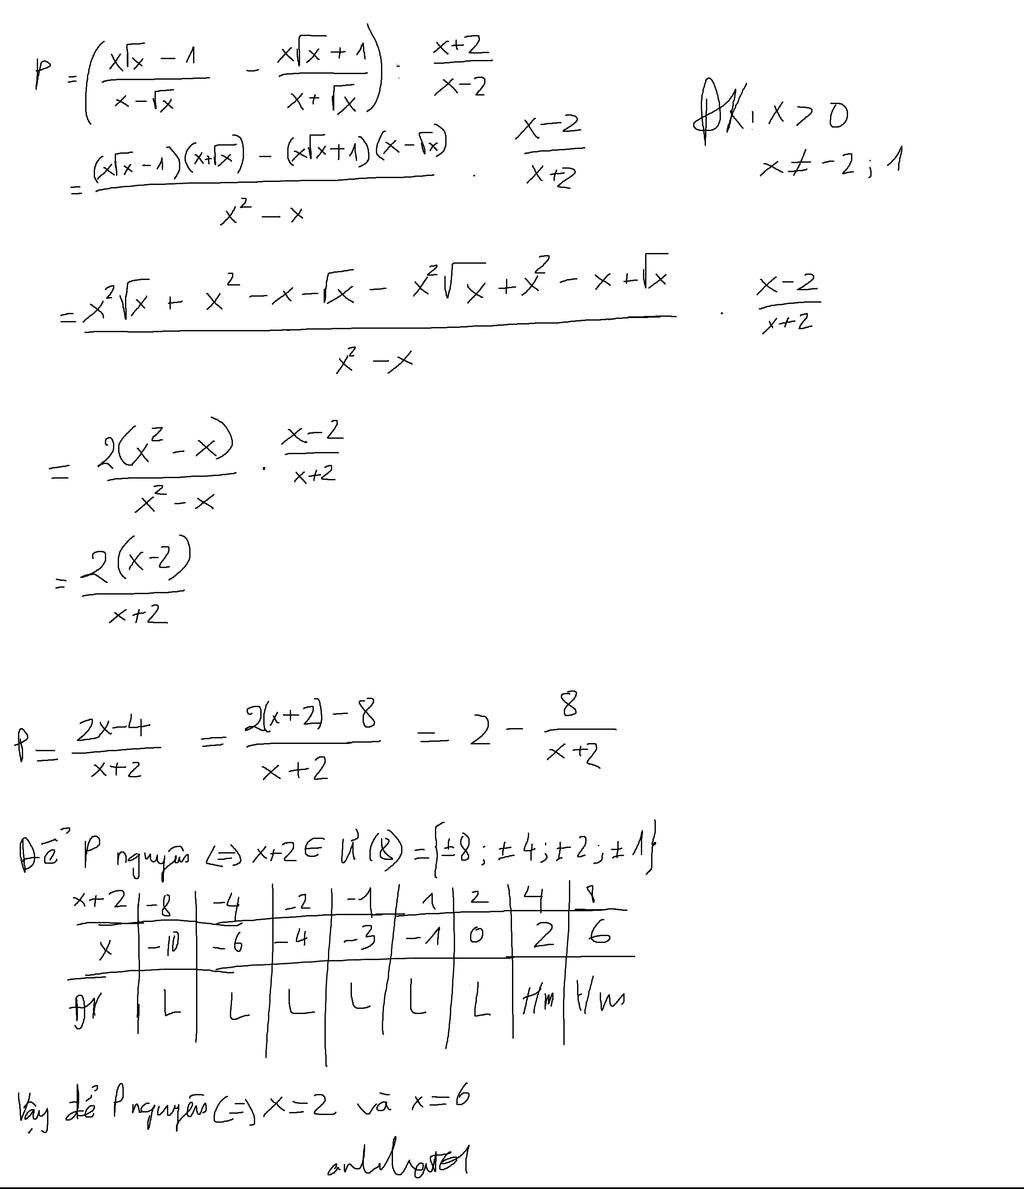 P = (x√x − 1 / x − √x − x√x + 1 / x + √x) : x+2 / x−2
ĐK: x > 0
x ≠ −2 ; 1
= (x√x − 1)(x+√x) − (x√x+1)(x−√x) / x² − x . x−2 / x+2
= x²√x + x² − x − √x − x²√x + x² − x + √x / x² − x . x−2 / x+2
= 2(x² − x) / x² − x . x−2 / x+2
= 2(x−2) / x+2
P = 2x−4 / x+2 = 2(x+2) − 8 / x+2 = 2 − 8 / x+2
Để P nguyên <=> x+2 ∈ Ư(8) = {±8 ; ±4 ; ±2 ; ±1}
x+2 | −8 | −4 | −2 | −1 | 1 | 2 | 4 | 8
x | −10 | −6 | −4 | −3 | −1 | 0 | 2 | 6
ĐK | L | L | L | L | L | L | t/m | t/m
Vậy để P nguyên <=> x=2 và x=6